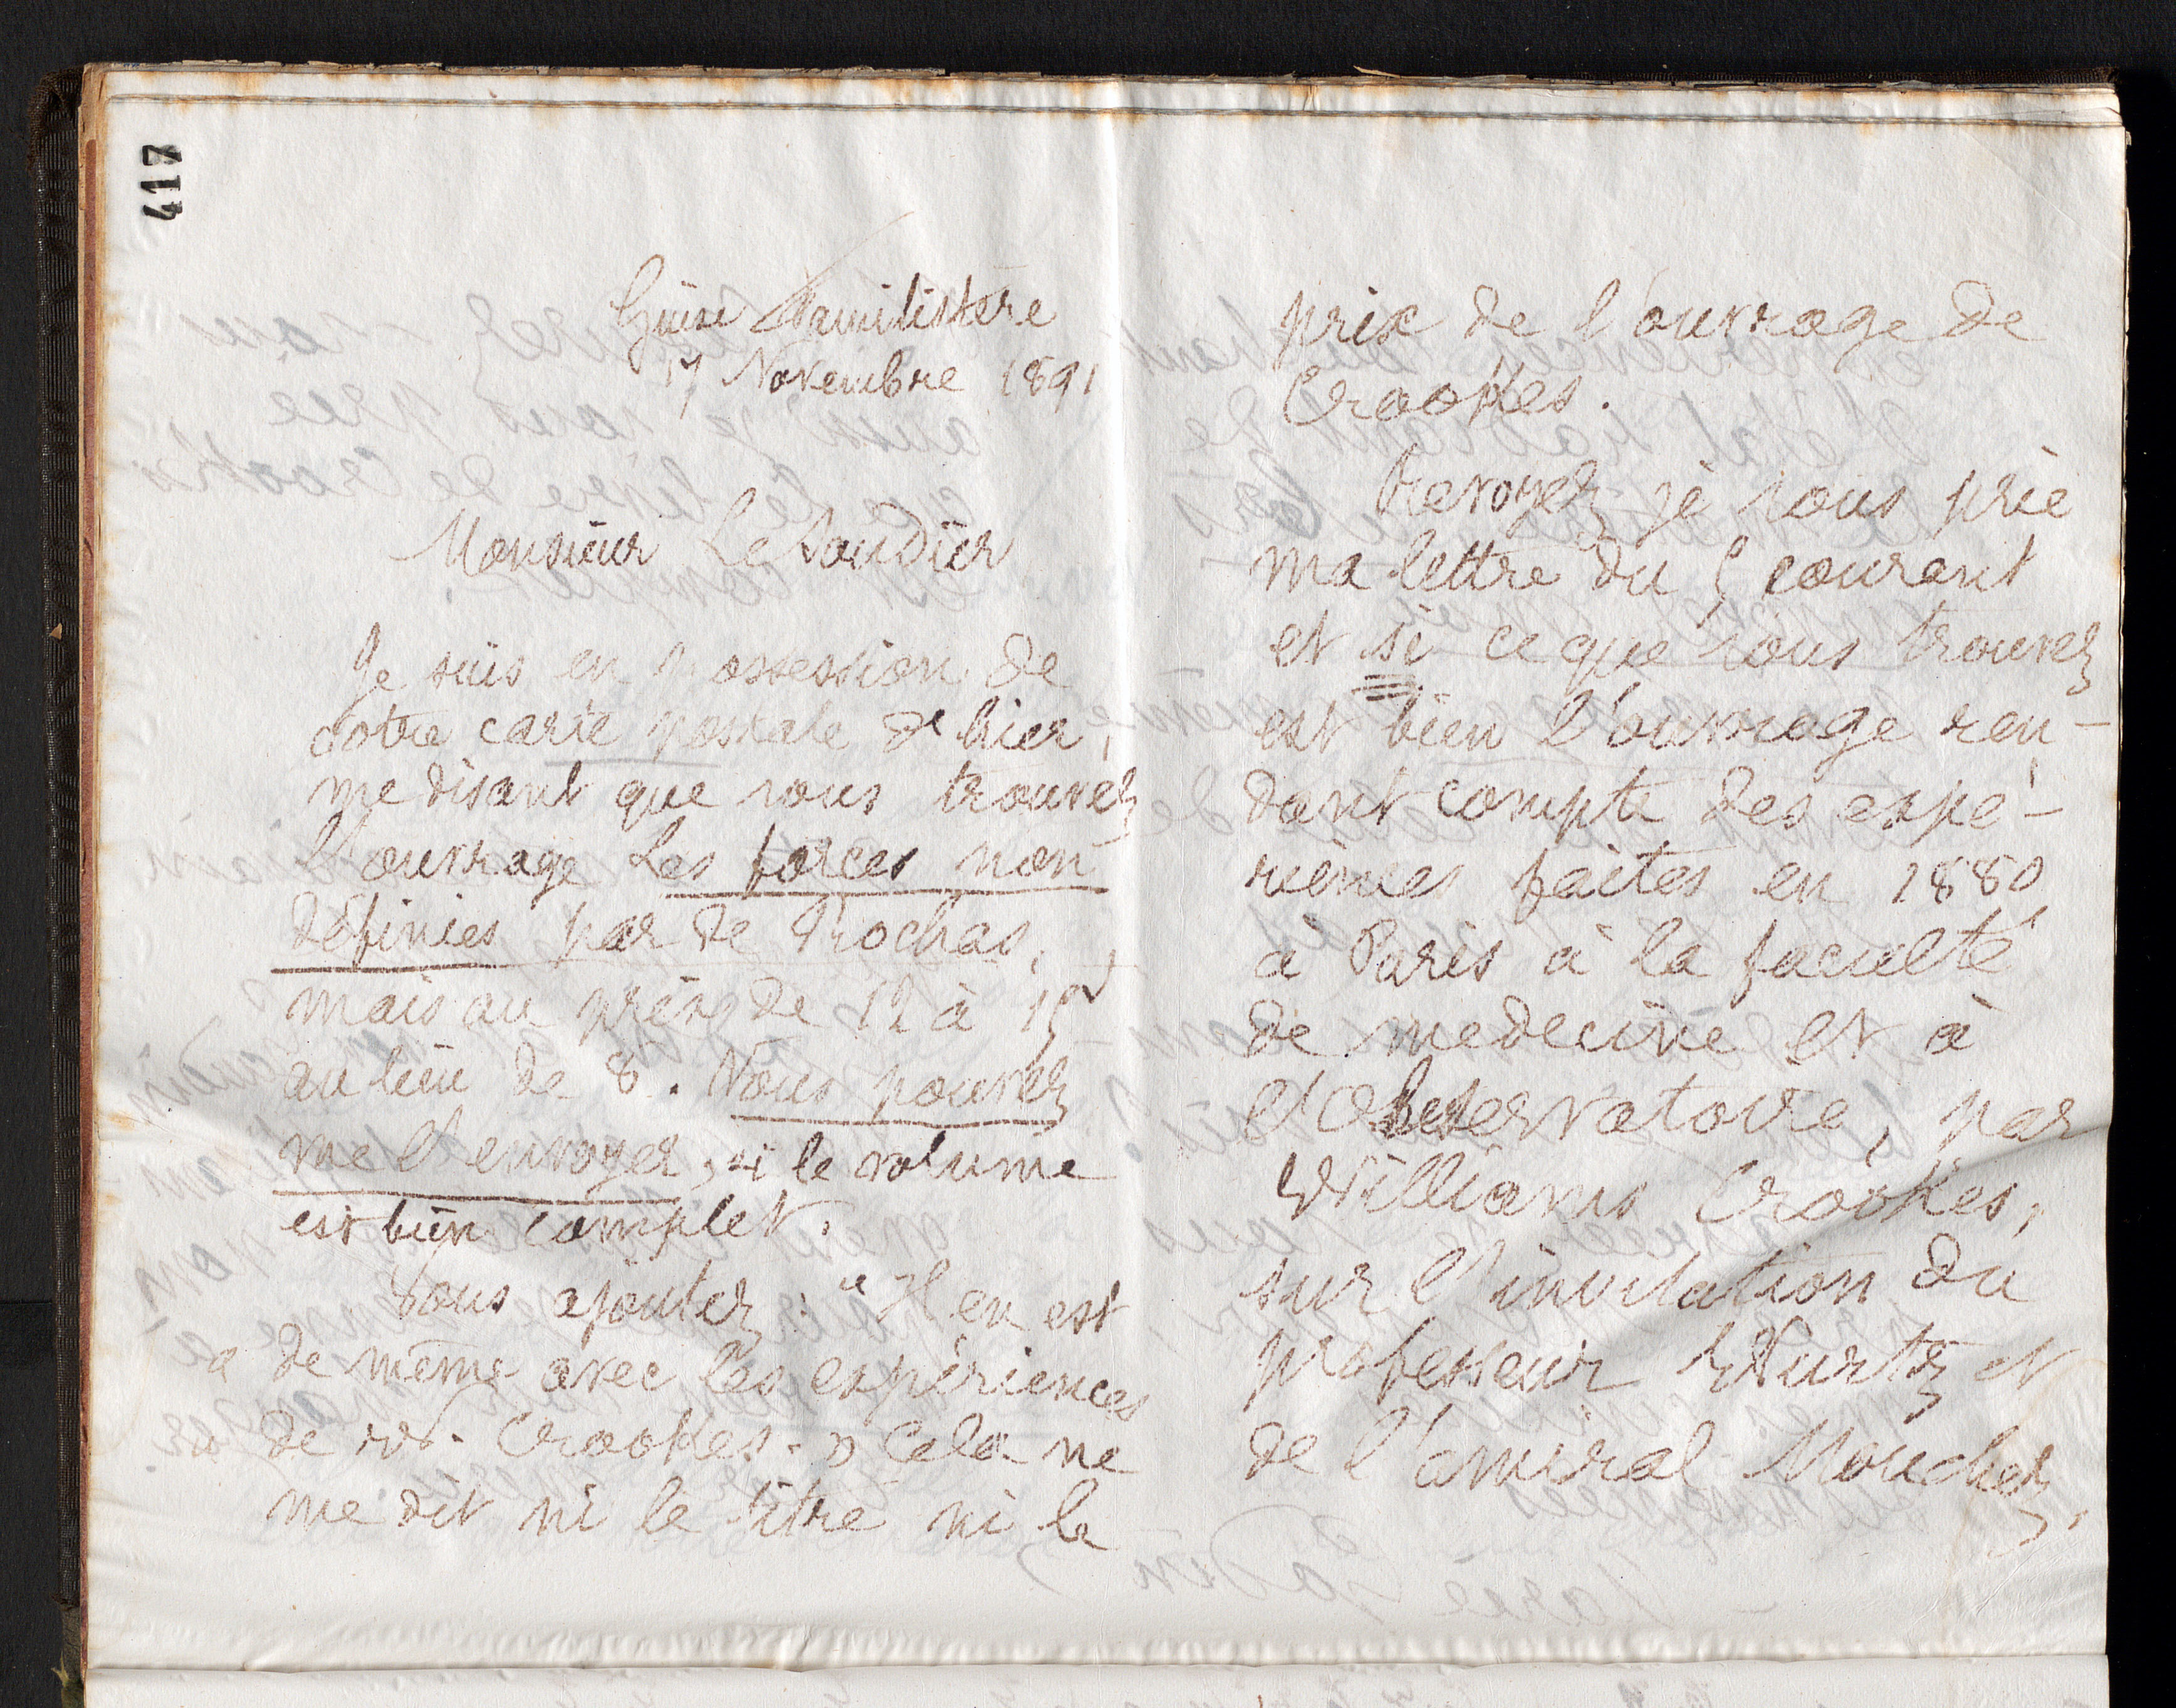 417
Guise Familistère
17 Novembre 1891
Monsieur Le Soudier
Je suis en possession de
votre carte postale d'hier,
me disant que vous trouvez
l'ouvrage Les forces non
définies par de Rochas,
mais au prix de 12 à 15f
au lieu de 8. Vous pouvez
me l'envoyer, si le volume
est bien complet.
Vous ajoutez : " Il en est
" de même avec les expériences
" de W. Crookes. " Cela ne
me dit ni le titre ni le
prix de l'ouvrage de
Crookes.
Revoyez je vous prie
ma lettre du 5 courant
et si ce que vous trouvez
est bien l'ouvrage ren-
dant compte des expé-
riences faites en 1880
à Paris à la faculté
de medecine et à
l'Observatoire, par
Williams Crookes,
sur l'invitation du
professeur Wurtz et
de l'amiral Mouchez,